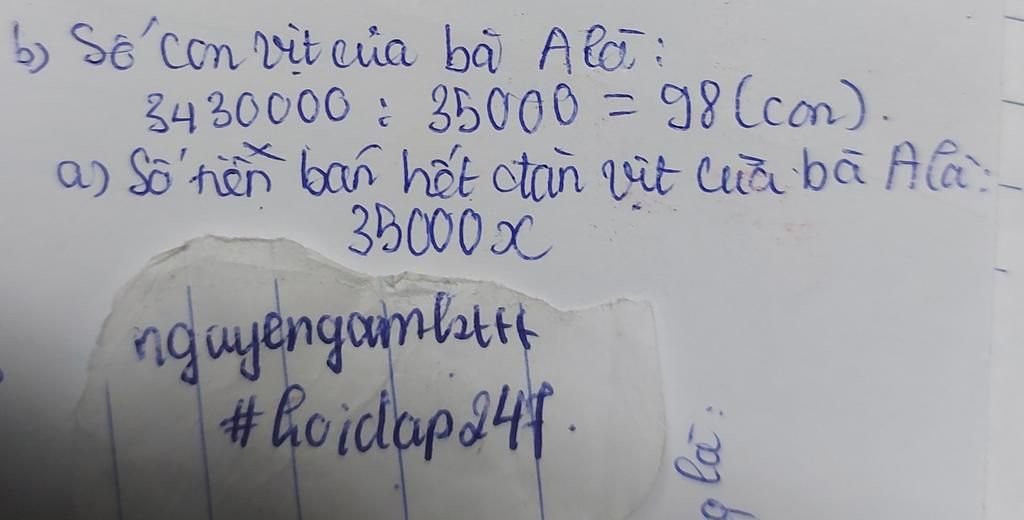 b) Số con vịt của bà A là:
3430000 : 35000 = 98 (con).
a) Số tiền bán hết đàn vịt của bà A là:
35000x
nguyengamlzttt
#hoidap247.
g là: